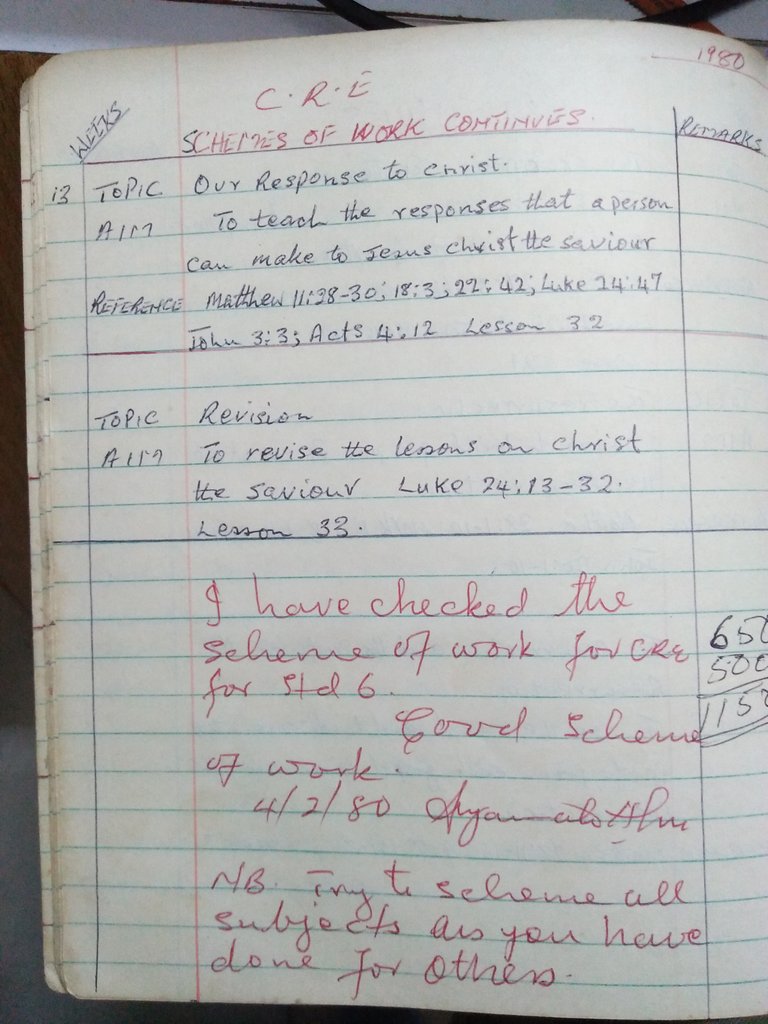 1980
C.R.E
WEEKS
SCHEMES OF WORK CONTINUES.
REMARKS
13 TOPIC Our Response to Christ.
AIM To teach the responses that a person
can make to Jesus Christ the saviour
REFERENCE Matthew 11:28-30; 18:3; 22:42; Luke 24:47
John 3:3; Acts 4:12 Lesson 32
TOPIC Revision
AIM To revise the lessons on Christ
the saviour Luke 24:13-32.
Lesson 33.
I have checked the
scheme of work for CRE
for Std 6.
Good Scheme
of work.
4/2/80
NB. Try to scheme all
subjects as you have
done for others.
650
500
1150